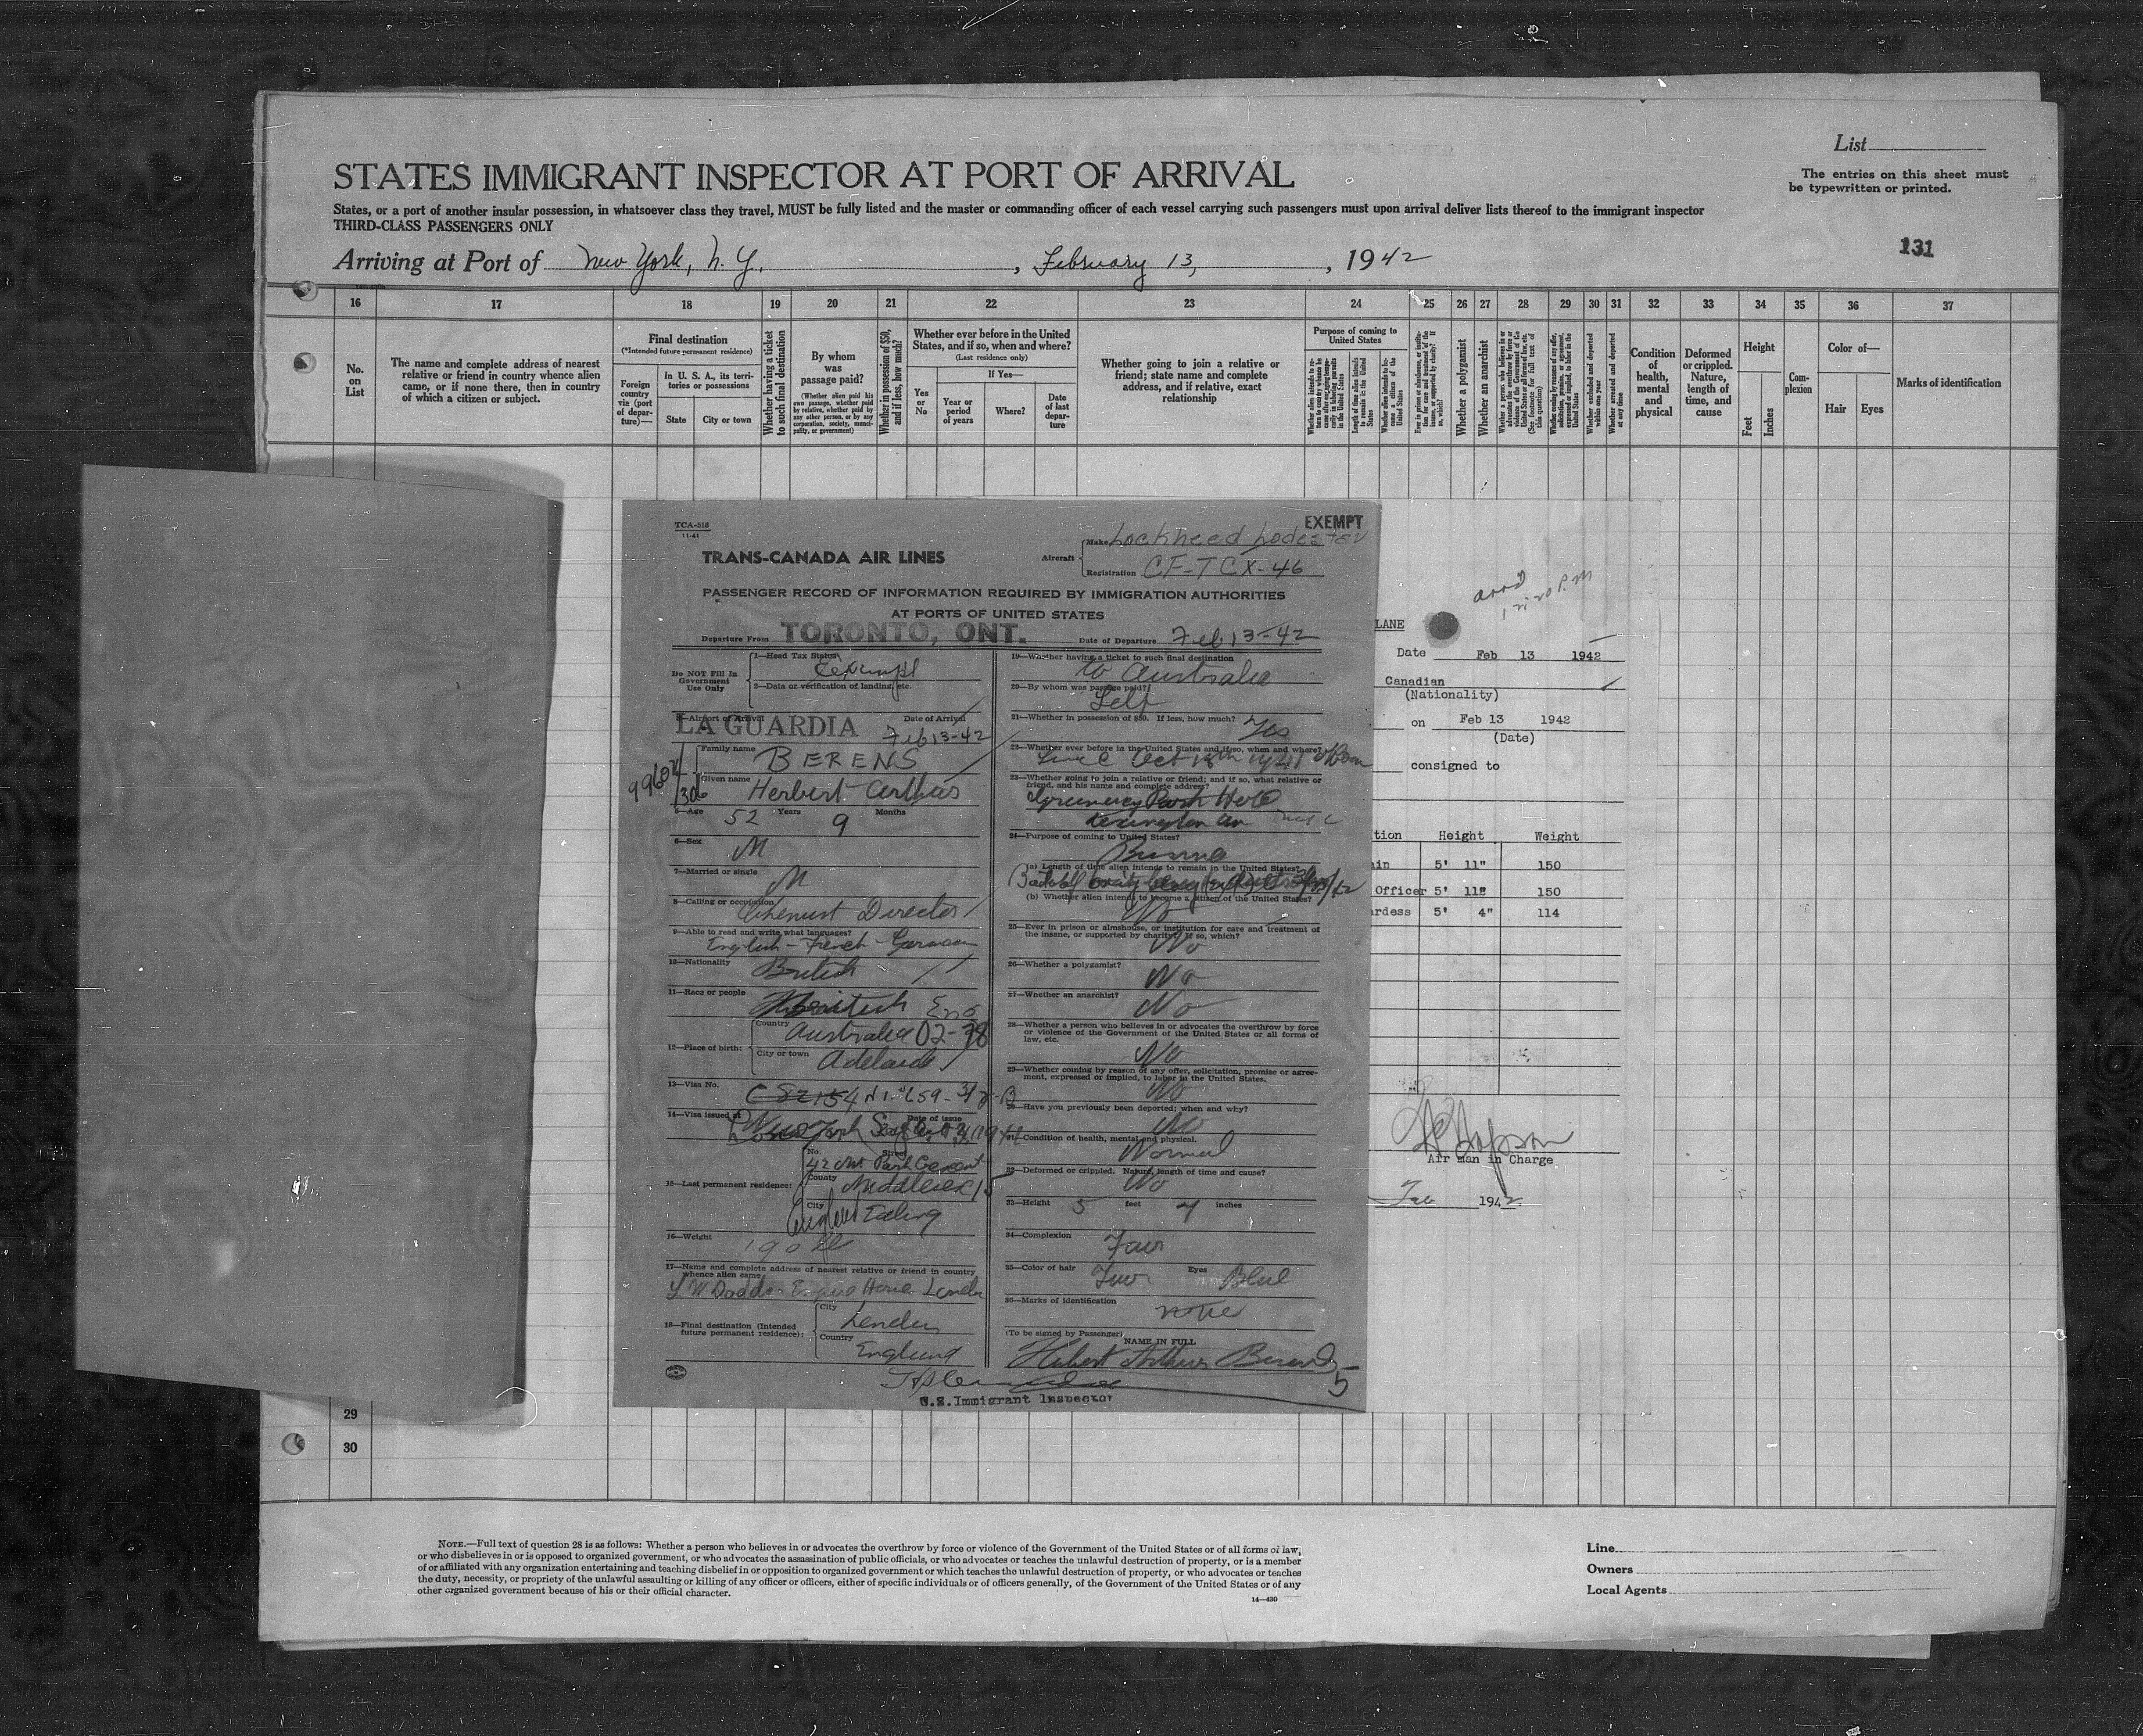 List
The entries on this sheet must
be typewritten or printed.
STATES IMMIGRANT INSPECTOR AT PORT OF ARRIVAL
States, or a port of another insular possession, in whatsoever class they travel, MUST be fully listed and the master or commanding officer of each vessel carrying such passengers must upon arrival deliver lists thereof to the immigrant inspector
THIRD-CLASS PASSENGERS ONLY
131
Arriving at Port of New York, N. Y., February 13, 1942
16 17 18 19 20 21 22 23 24 25 26 27 28 29 30 31 32 33 34 35 36 37
No. on List
The name and complete address of nearest
relative or friend in country whence alien
came, or if none there, then in country
of which a citizen or subject.
Final destination
(*Intended future permanent residence)
Foreign country via (port of departure)—
In U. S. A., its territories or possessions
State
City or town
Whether having a ticket to such final destination
By whom was passage paid?
(Whether alien paid his own passage, whether paid by relative, whether paid by any other person, or by any corporation, society, municipality, or government)
Whether in possession of $50, and if less, how much?
Whether ever before in the United States, and if so, when and where?
(Last residence only)
Yes or No
If Yes—
Year or period of years
Where?
Date of last departure
Whether going to join a relative or
friend; state name and complete
address, and if relative, exact
relationship
Purpose of coming to United States
Whether a polygamist
Whether an anarchist
Condition of health, mental and physical
Deformed or crippled. Nature, length of time, and cause
Height
Feet
Inches
Complexion
Color of—
Hair
Eyes
Marks of identification
TCA-516
11-41
EXEMPT
TRANS-CANADA AIR LINES
Aircraft
Make Lockheed Lodestar
Registration CF-TCX-46
PASSENGER RECORD OF INFORMATION REQUIRED BY IMMIGRATION AUTHORITIES
AT PORTS OF UNITED STATES
Departure From TORONTO, ONT.
Date of Departure Feb 13-42
Do NOT Fill In
Government
Use Only
1—Head Tax Status
Exempt
2—Data or verification of landing, etc.
3—Airport of Arrival
LA GUARDIA
Date of Arrival
Feb 13-42
Family name
BERENS
Given name
Herbert Arthur
5—Age 52 Years 9 Months
6—Sex
M
7—Married or single
M
8—Calling or occupation
Chemist Director
9—Able to read and write what languages?
English - French - German
10—Nationality
British
11—Race or people
Eng
12—Place of birth:
Country
Australia 02-78
City or town
Adelaide
13—Visa No.
14—Visa issued at
Date of issue
15—Last permanent residence:
No.
Street
42 Park Crescent
County
Middlesex
City
England Ealing
16—Weight
190
17—Name and complete address of nearest relative or friend in country
whence alien came
18—Final destination (Intended
future permanent residence):
City
London
Country
England
19—Whether having a ticket to such final destination
to Australia
20—By whom was passage paid?
Self
21—Whether in possession of $50. If less, how much?
Yes
22—Whether ever before in the United States and if so, when and where?
23—Whether going to join a relative or friend; and if so, what relative or
friend, and his name and complete address?
24—Purpose of coming to United States?
(a) Length of time alien intends to remain in the United States?
(b) Whether alien intends to become a citizen of the United States?
No
25—Ever in prison or almshouse, or institution for care and treatment of
the insane, or supported by charity? If so, which?
No
26—Whether a polygamist?
No
27—Whether an anarchist?
No
28—Whether a person who believes in or advocates the overthrow by force
or violence of the Government of the United States or all forms of
law, etc.
No
29—Whether coming by reason of any offer, solicitation, promise or agree-
ment, expressed or implied, to labor in the United States.
No
30—Have you previously been deported; when and why?
No
31—Condition of health, mental and physical.
Normal
32—Deformed or crippled. Nature, length of time and cause?
No
33—Height 5 feet inches
34—Complexion
Fair
35—Color of hair
Fair
Eyes
Blue
36—Marks of identification
none
(To be signed by Passenger)
NAME IN FULL
Herbert Arthur Berens
5
U.S.Immigrant Inspector
LANE
Date Feb 13 1942
Canadian
(Nationality)
on Feb 13 1942
(Date)
consigned to
tion Height Weight
ain 5' 11" 150
Officer 5' 11" 150
rdess 5' 4" 114
Air man in Charge
1942
29
30
NOTE.—Full text of question 28 is as follows: Whether a person who believes in or advocates the overthrow by force or violence of the Government of the United States or of all forms of law,
or who disbelieves in or is opposed to organized government, or who advocates the assassination of public officials, or who advocates or teaches the unlawful destruction of property, or is a member
of or affiliated with any organization entertaining and teaching disbelief in or opposition to organized government or which teaches the unlawful destruction of property, or who advocates or teaches
the duty, necessity, or propriety of the unlawful assaulting or killing of any officer or officers, either of specific individuals or of officers generally, of the Government of the United States or of any
other organized government because of his or their official character.
14—430
Line
Owners
Local Agents